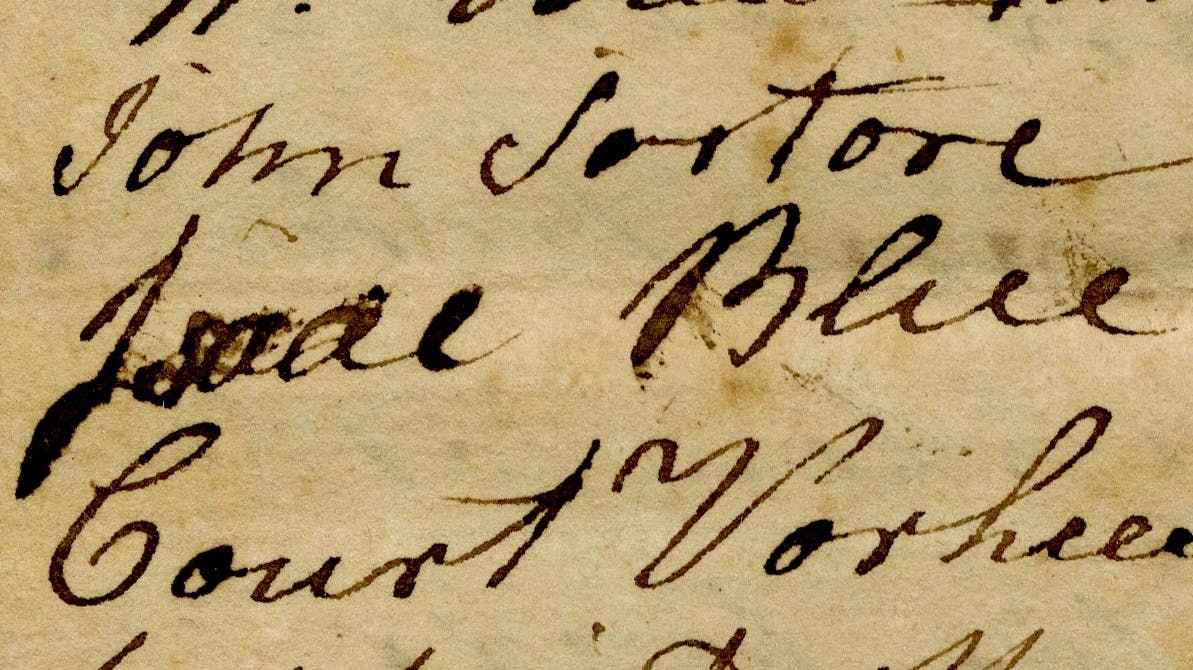 John Sortore
Isaac Blue
Court Vorhees